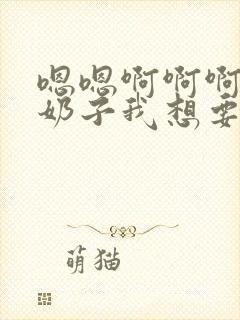 嗯嗯啊啊啊
奶子我想要
萌猫